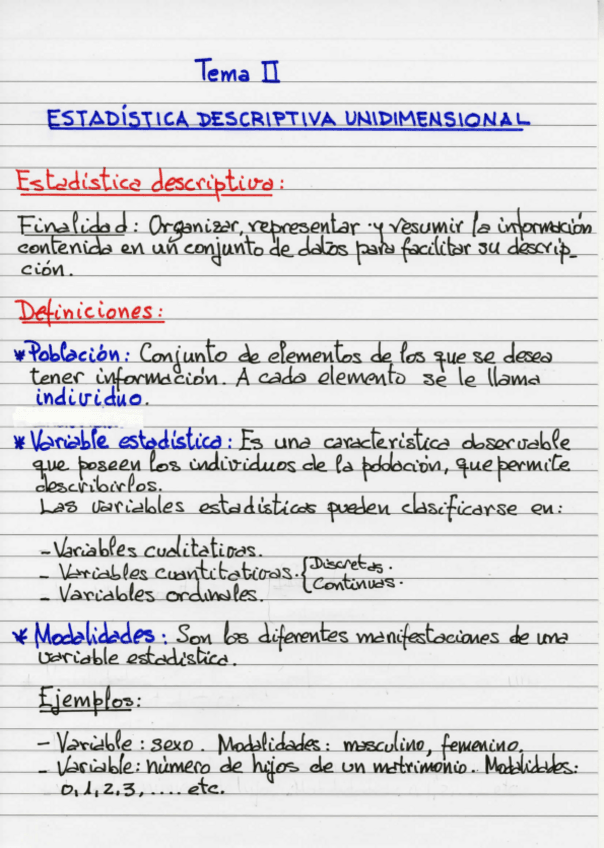 Tema II
ESTADÍSTICA DESCRIPTIVA UNIDIMENSIONAL
Estadística descriptiva:
Finalidad: Organizar, representar y resumir la información
contenida en un conjunto de datos para facilitar su descrip_
ción.
Definiciones:
* Población: Conjunto de elementos de los que se desea
tener información. A cada elemento se le llama
individuo.
* Variable estadística: Es una característica observable
que poseen los individuos de la población, que permite
describirlos.
Las variables estadísticas pueden clasificarse en:
- Variables cualitativas.
- Variables cuantitativas. { Discretas.
Continuas.
- Variables ordinales.
* Modalidades: Son las diferentes manifestaciones de una
variable estadística.
Ejemplos:
- Variable: sexo. Modalidades: masculino, femenino.
- Variable: número de hijos de un matrimonio. Modalidades:
0, 1, 2, 3, .... etc.